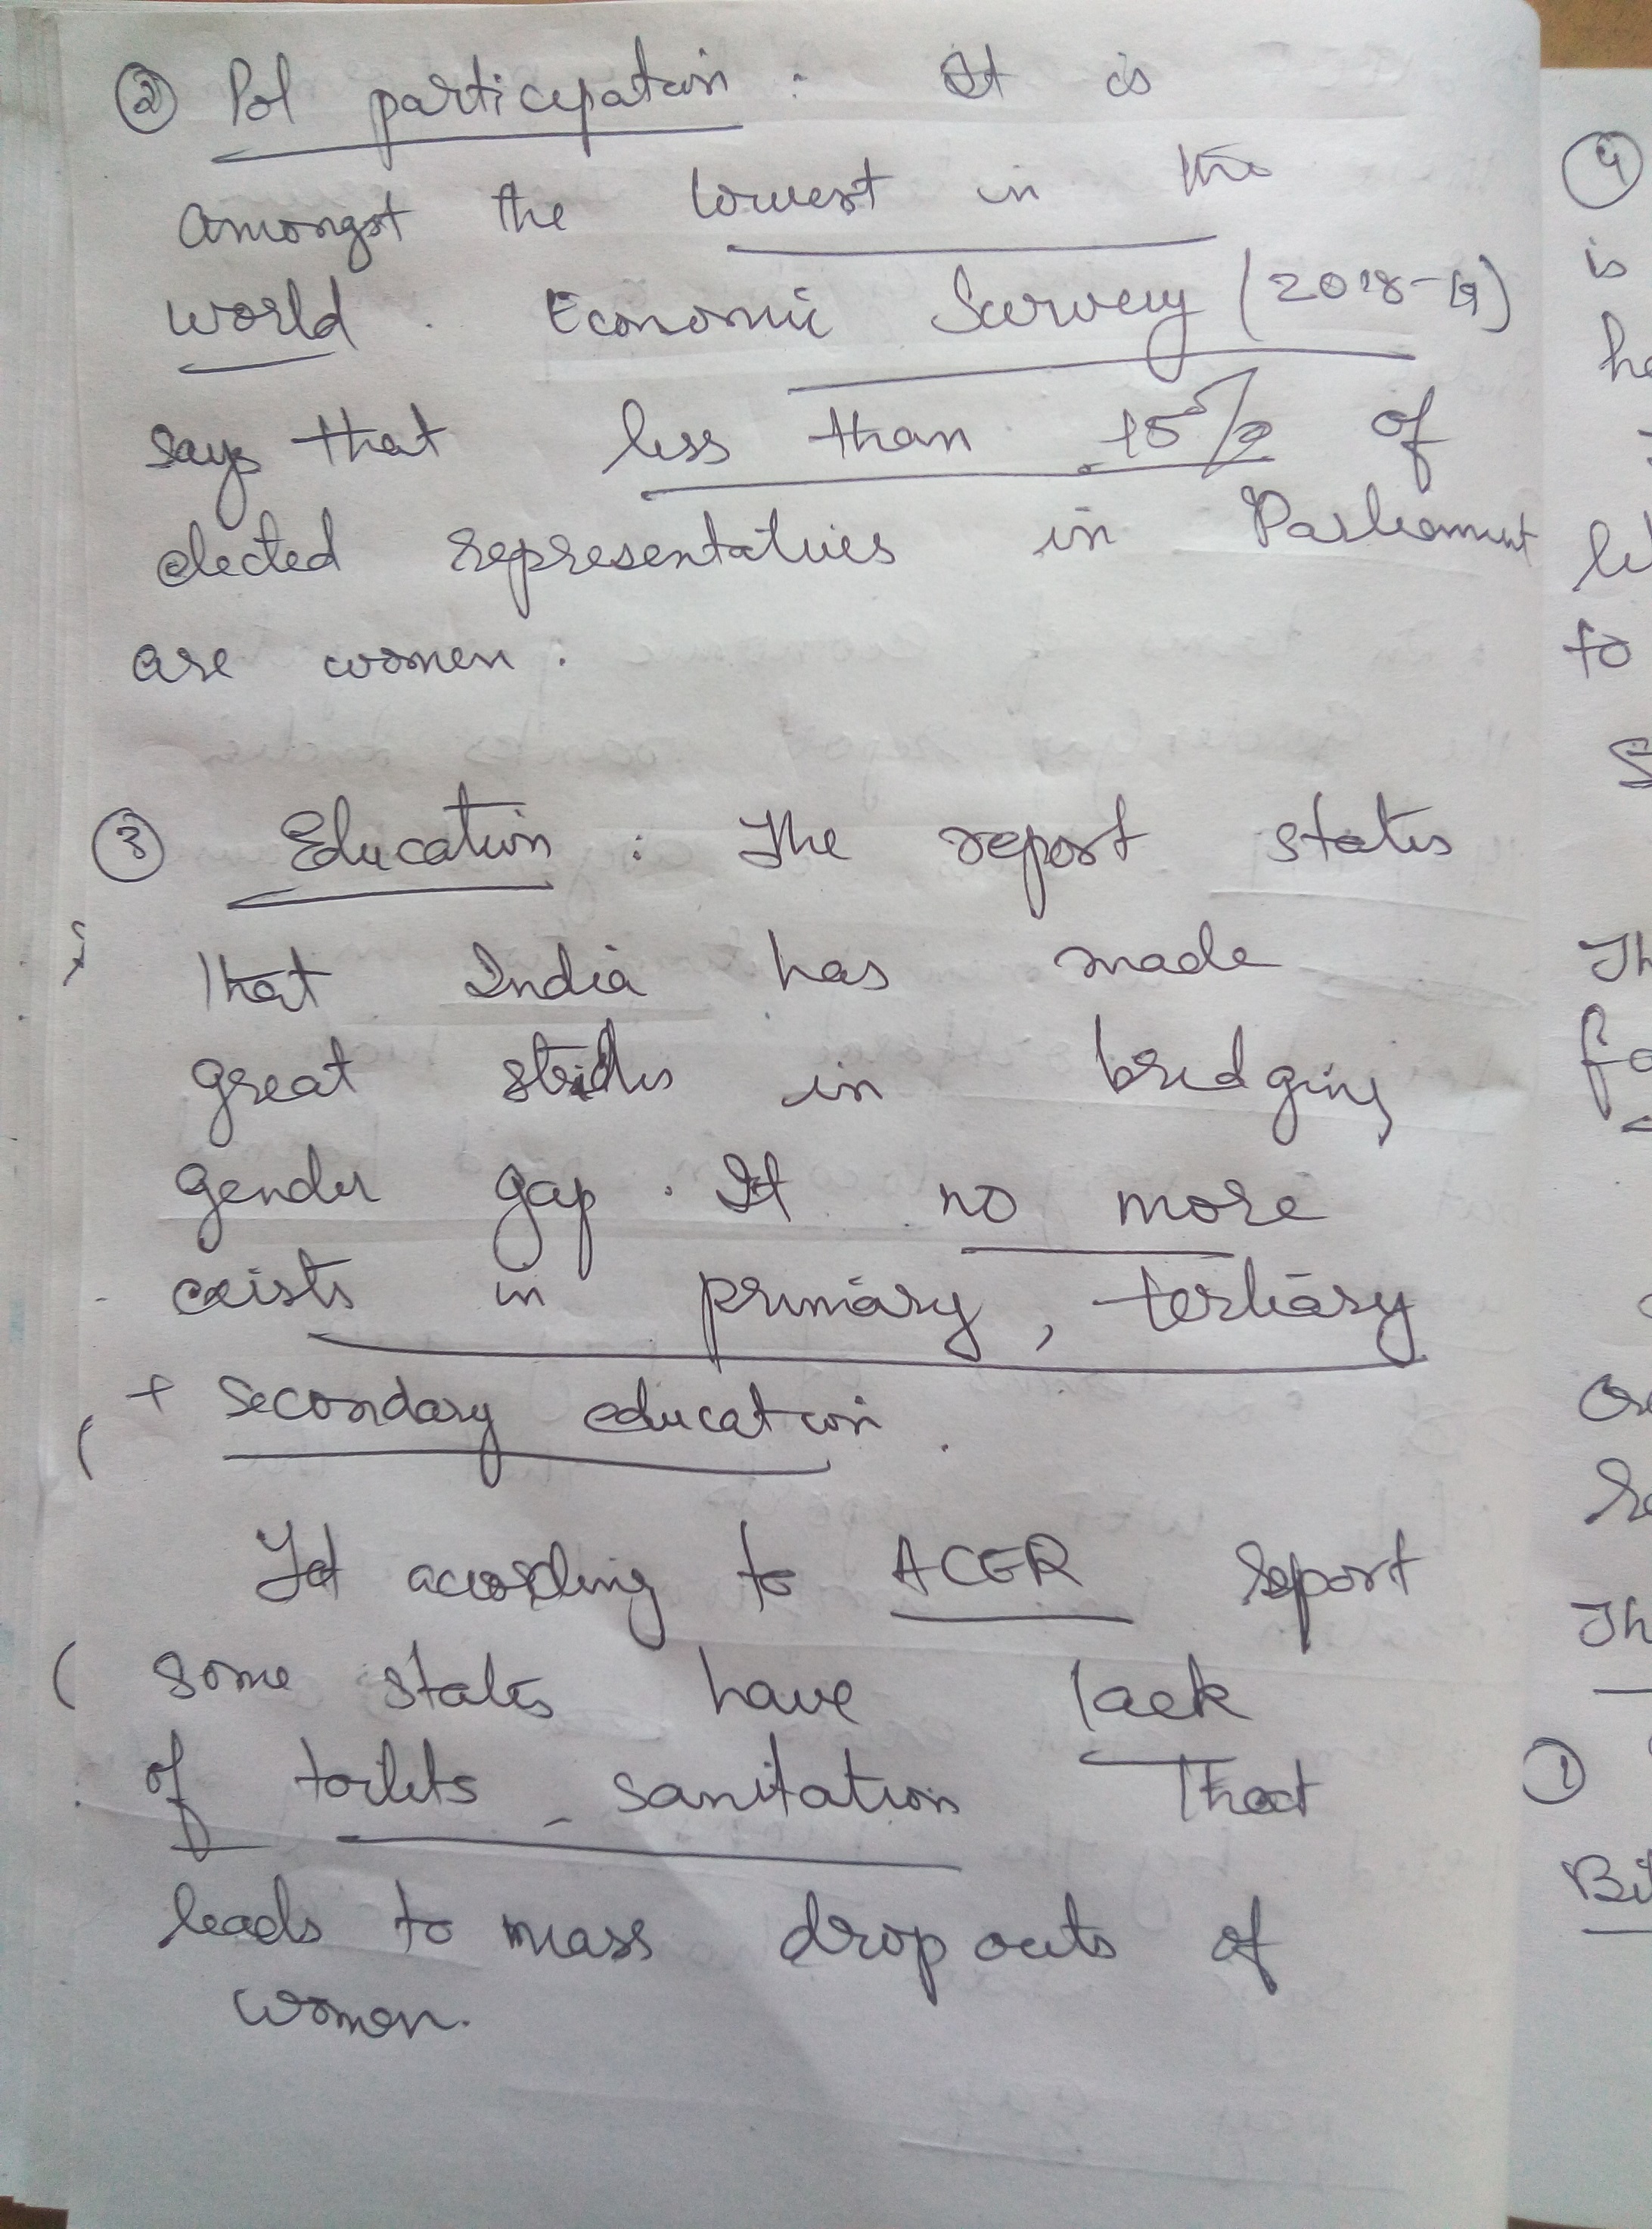 ② Pol participation : It is
amongst the lowest in the
world. Economic Survey (2018-19)
says that less than 15% of
elected representatives in Parliament
are women.
③ Education : The report states
that India has made
great strides in bridging
gender gap. It no more
exists in primary, tertiary
+ secondary education.
Yet according to ACER report
some states have lack
of toilets, sanitation that
leads to mass drop outs of
women.
④
is
to
①